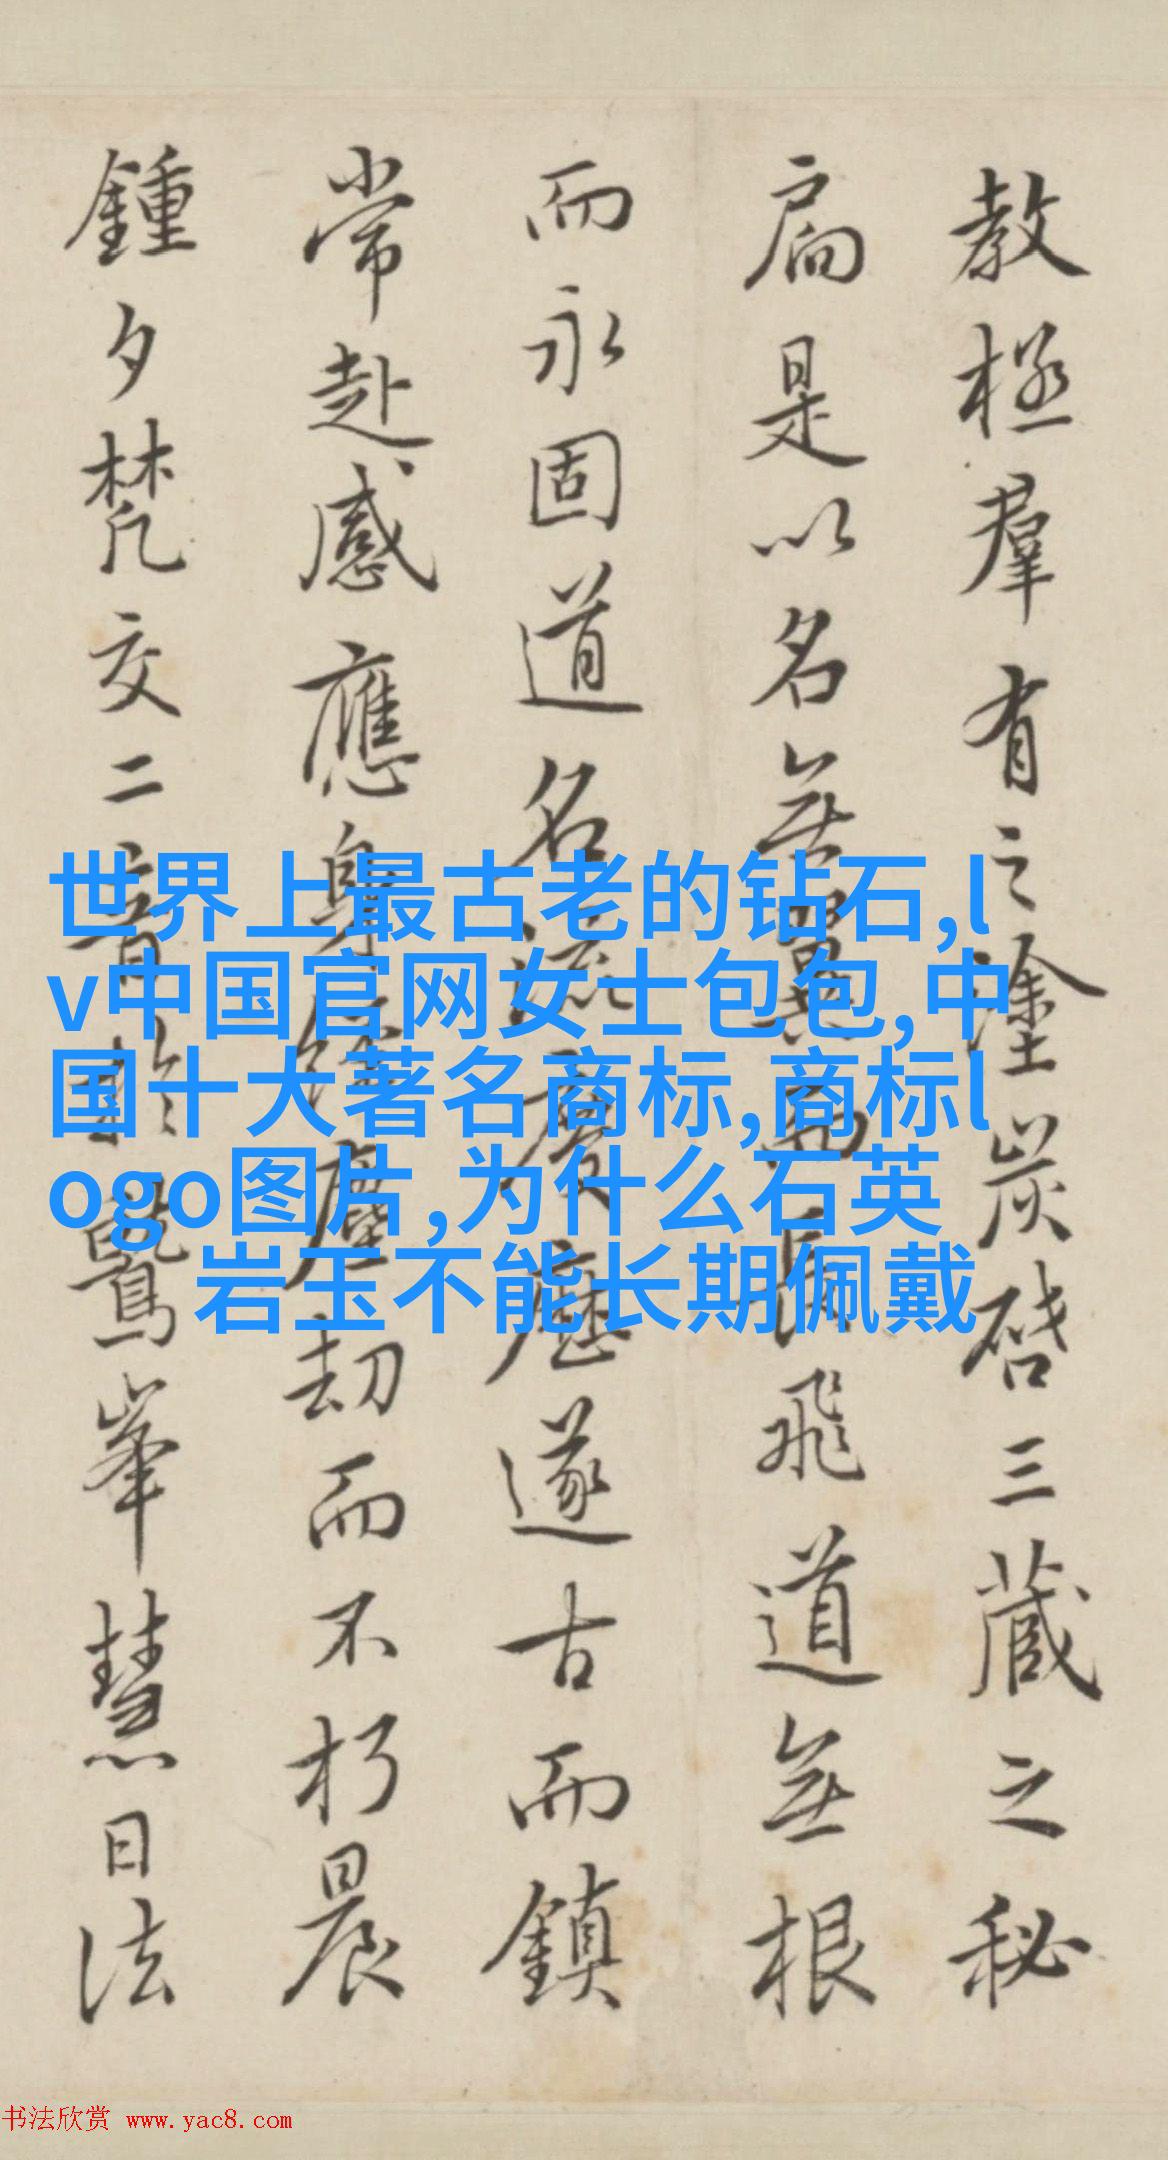 教極羣有之塗炭啓三藏之秘
扃是以名無翼而長飛道無根
而永固道名流慶歷遂古而鎮
常赴感應身經塵劫而不朽晨
鍾夕梵交二音於鷲峯慧日法
世界上最古老的钻石,l
v中国官网女士包包,中
国十大著名商标,商标l
ogo图片,为什么石英
岩玉不能长期佩戴
书法欣赏 www.yac8.com